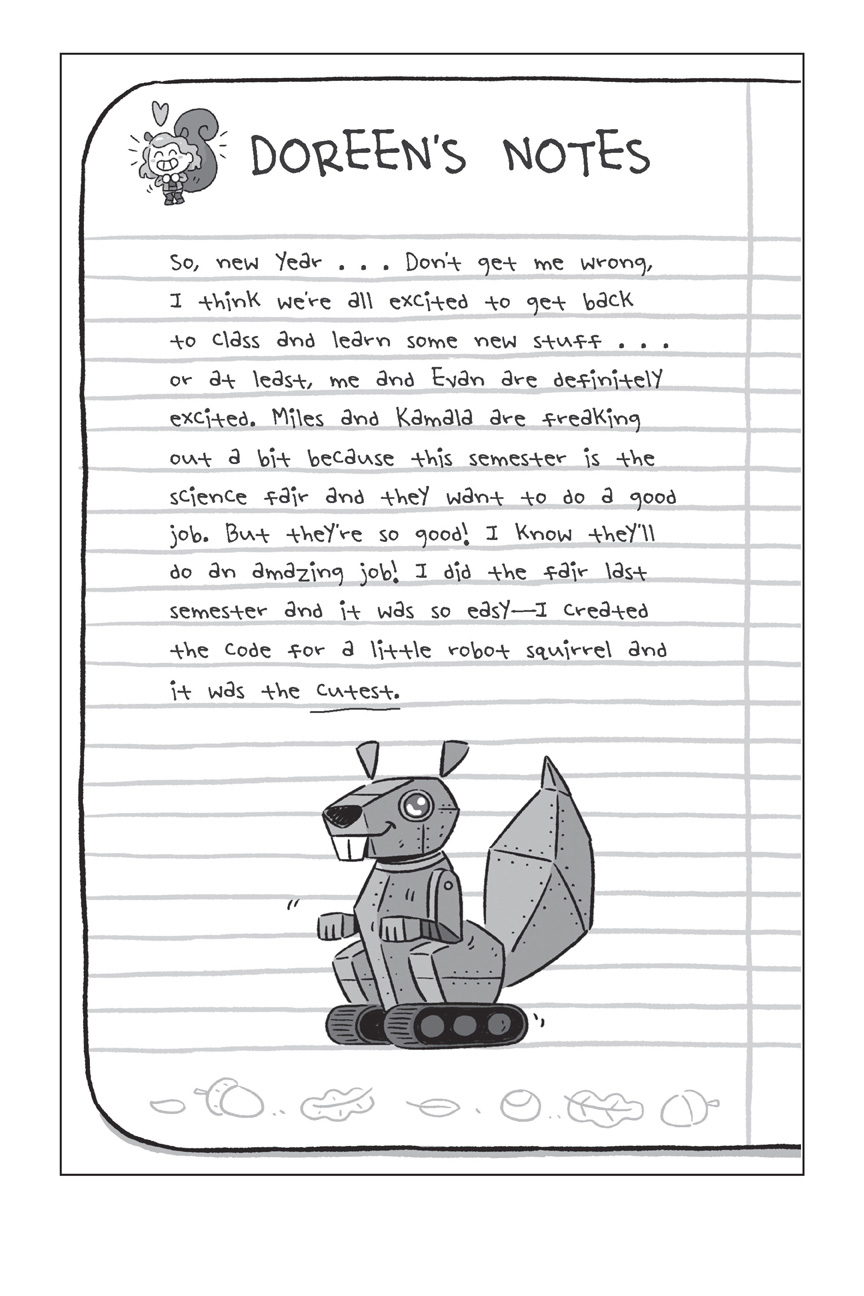 DOREEN'S NOTES
So, new year . . . Don't get me wrong,
I think we're all excited to get back
to class and learn some new stuff . . .
or at least, me and Evan are definitely
excited. Miles and Kamala are freaking
out a bit because this semester is the
science fair and they want to do a good
job. But they're so good! I know they'll
do an amazing job! I did the fair last
semester and it was so easy—I created
the code for a little robot squirrel and
it was the cutest.